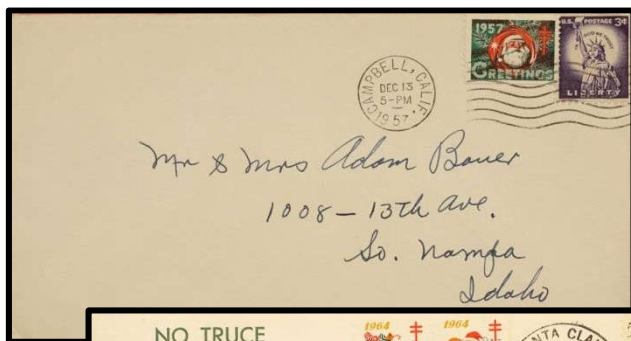 1957
GREETINGS
U.S. POSTAGE 3¢
IN GOD WE TRUST
LIBERTY
CAMPBELL, CALIF.
DEC 13
5-PM
1957
Mr & Mrs Adam Bauer
1008 - 13th Ave.
So. Nampa
Idaho
NO TRUCE
1964
1964
SANTA CLA